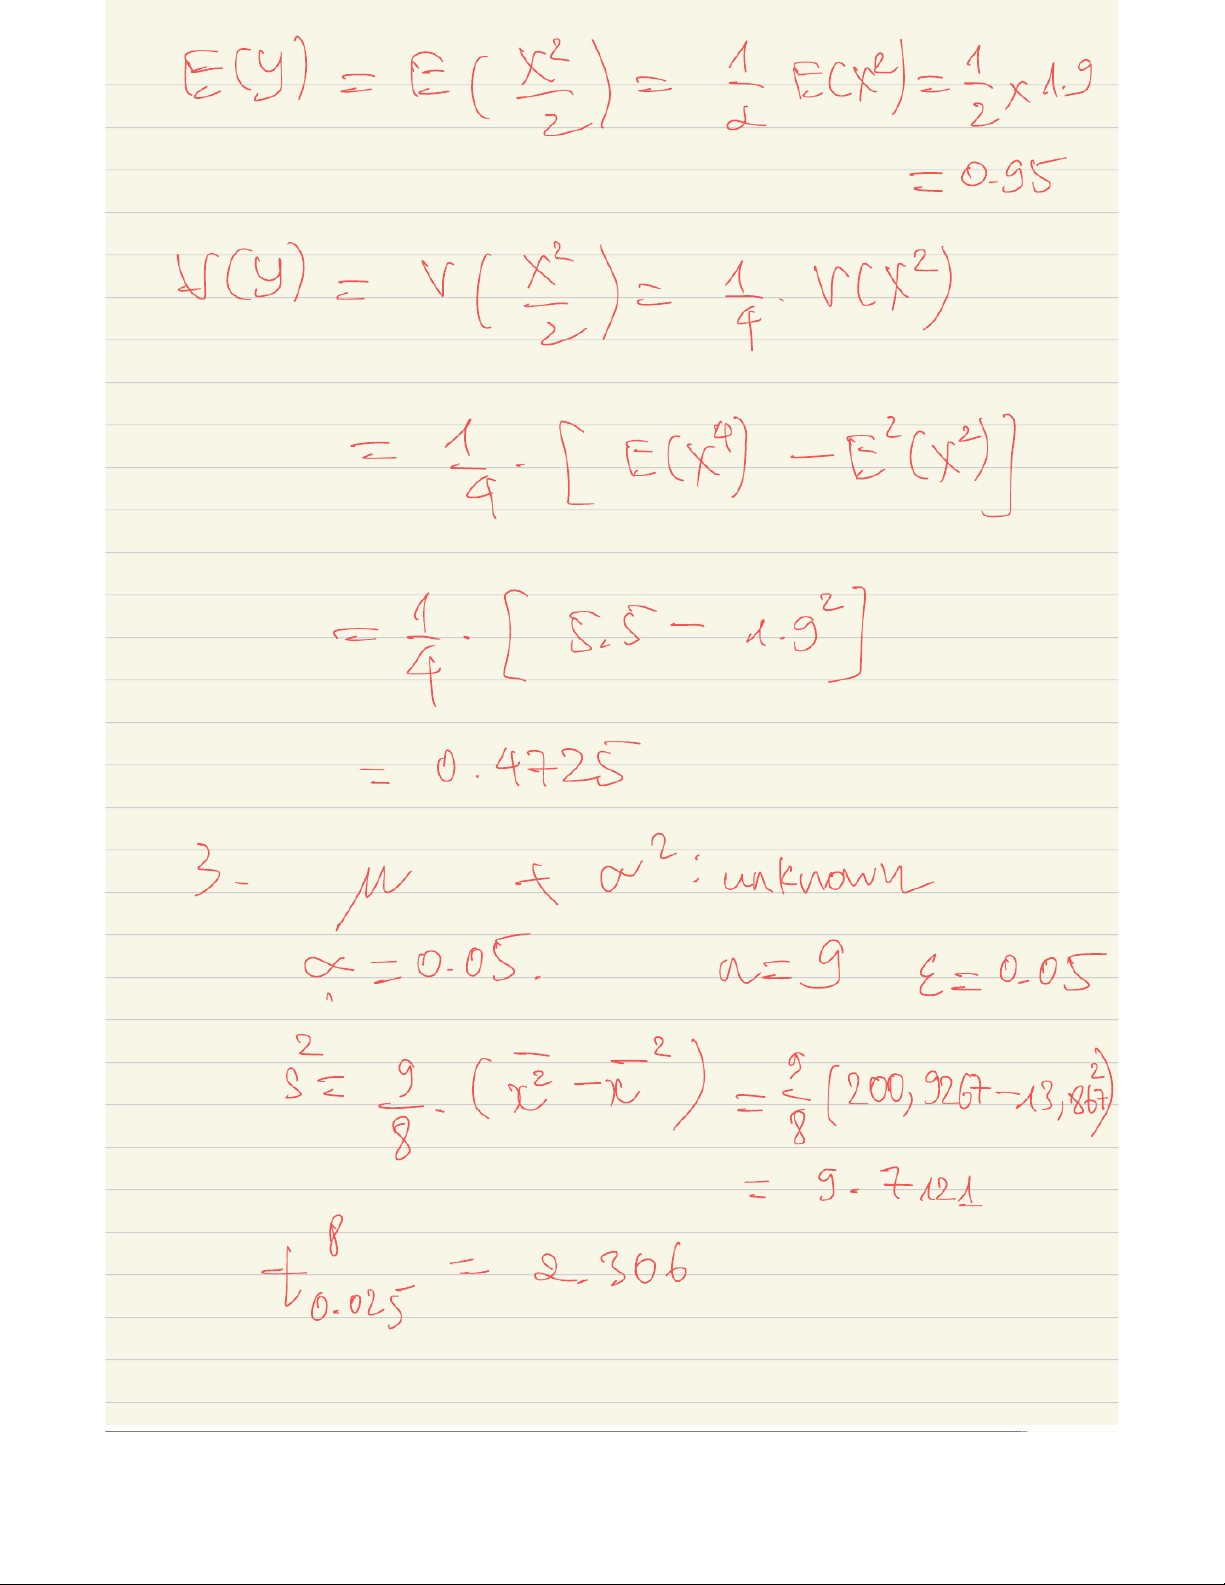 E(Y) = E(X²/2) = 1/2 E(X²) = 1/2 × 1.9
= 0.95
V(Y) = V(X²/2) = 1/4 . V(X²)
= 1/4 . [E(X⁴) − E²(X²)]
= 1/4 . [5.5 − 1.9²]
= 0.4725
3- μ + σ² : unknown
α = 0.05. n = 9 ε = 0.05
s² = 9/8 . (x̄² − x̄²) = 9/8 (200,9267 − 13,867²)
= 9.7121
t⁸₀.₀₂₅ = 2.306